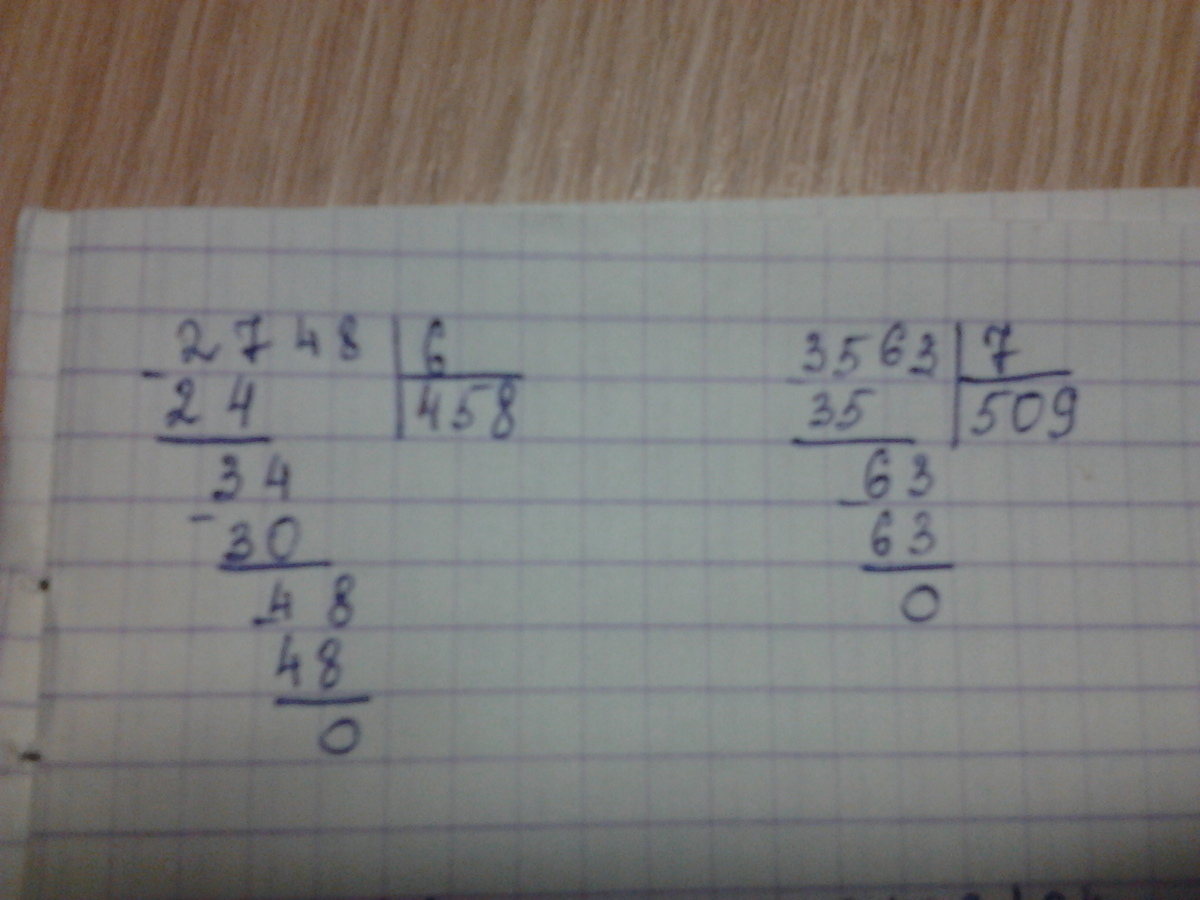 2748 | 6
- 24 | 458
34
- 30
- 48
48
0
3563 | 7
- 35 | 509
63
- 63
0